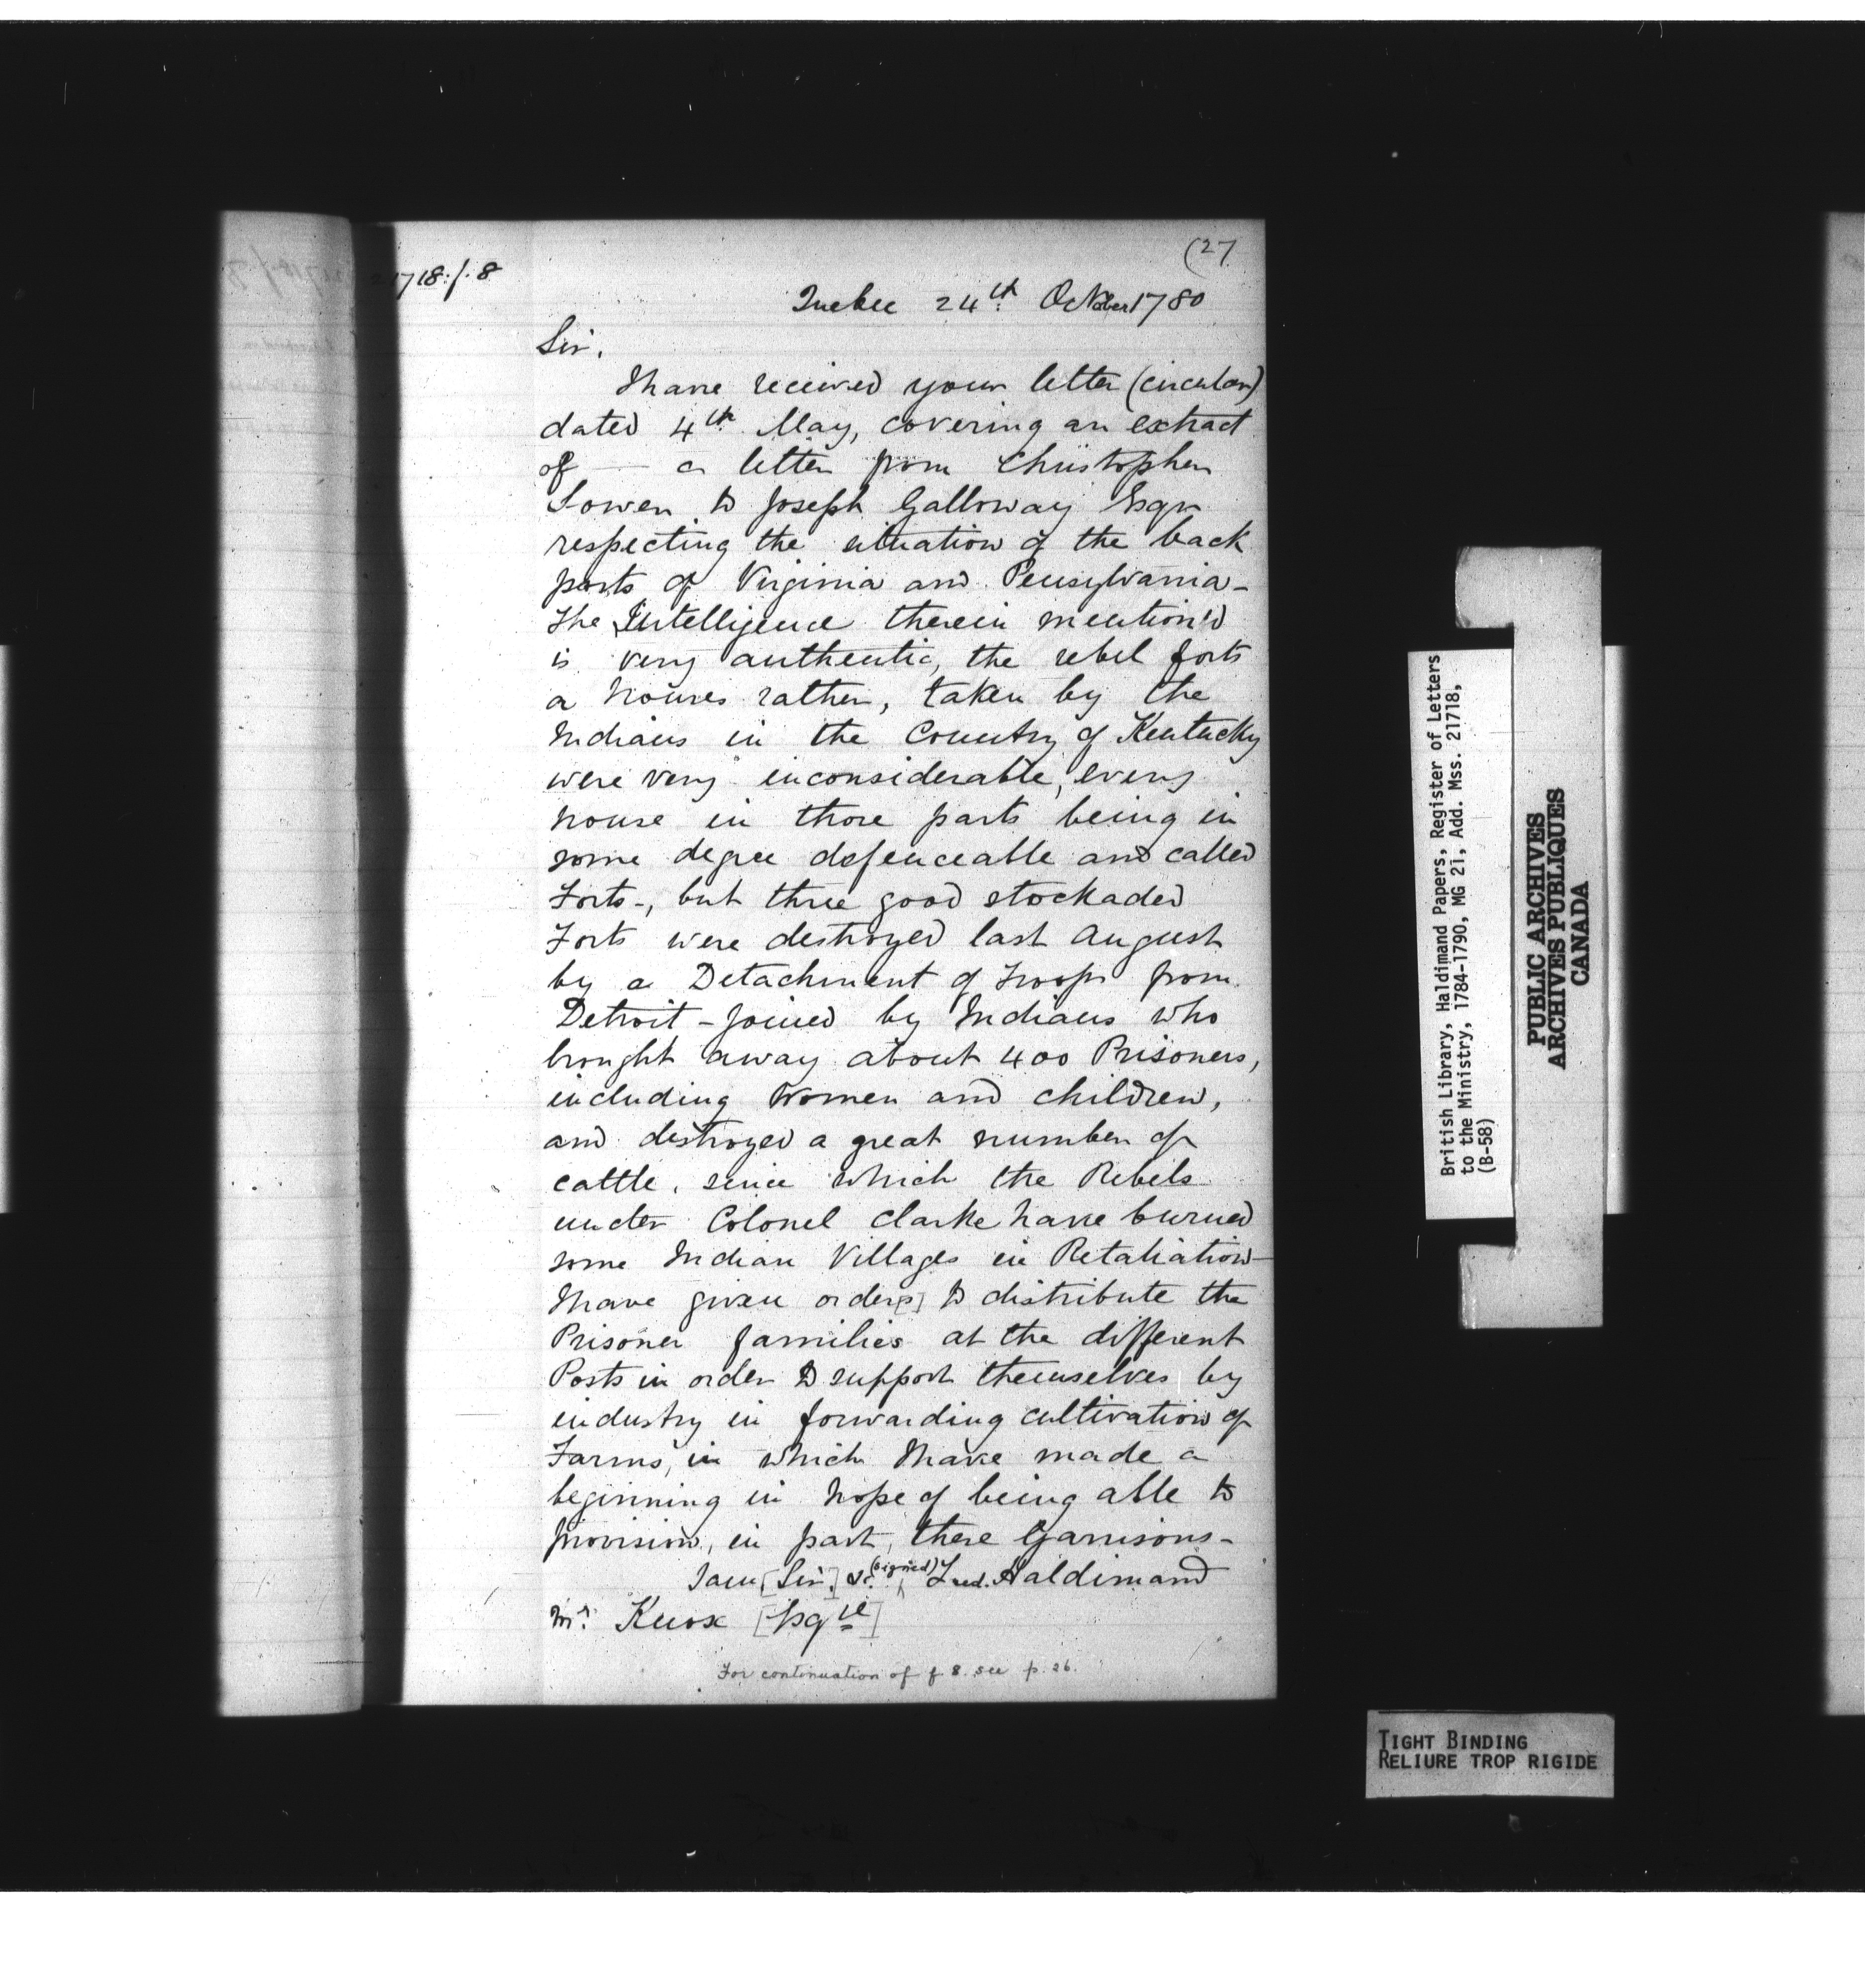 (27
21718: f. 8
Quebec 24th October 1780
Sir,
I have received your letter (circular)
dated 4th May, covering an extract
of — a letter from Christopher
Sower to Joseph Galloway Esqr
respecting the situation of the back
parts of Virginia and Pensylvania -
The Intelligence therein mention'd
is very authentic, the rebel forts
or houses rather, taken by the
Indians in the Country of Kentucky
were very inconsiderable, every
house in those parts being in
some degree defenceable and called
Forts -, but three good stockaded
Forts were destroyed last August
by a Detachment of Troops from
Detroit - joined by Indians who
brought away about 400 Prisoners,
including Women and children,
and destroyed a great number of
cattle, since which the Rebels
under Colonel Clarke have burned
some Indian Villages in Retaliation -
I have given order[s] to distribute the
Prisoner families at the different
Posts in order to support themselves by
industry in forwarding cultivation of
Farms, in which I have made a
beginning in hope of being able to
provision, in part, these Garrisons -
I am [Sir,] &c. (signed) Fred. Haldimand
Mr. Knox [Esqre]
For continuation of f 8. see p. 26.
British Library, Haldimand Papers, Register of Letters
to the Ministry, 1784-1790, MG 21, Add. Mss. 21718,
(B-58)
PUBLIC ARCHIVES
ARCHIVES PUBLIQUES
CANADA
TIGHT BINDING
RELIURE TROP RIGIDE